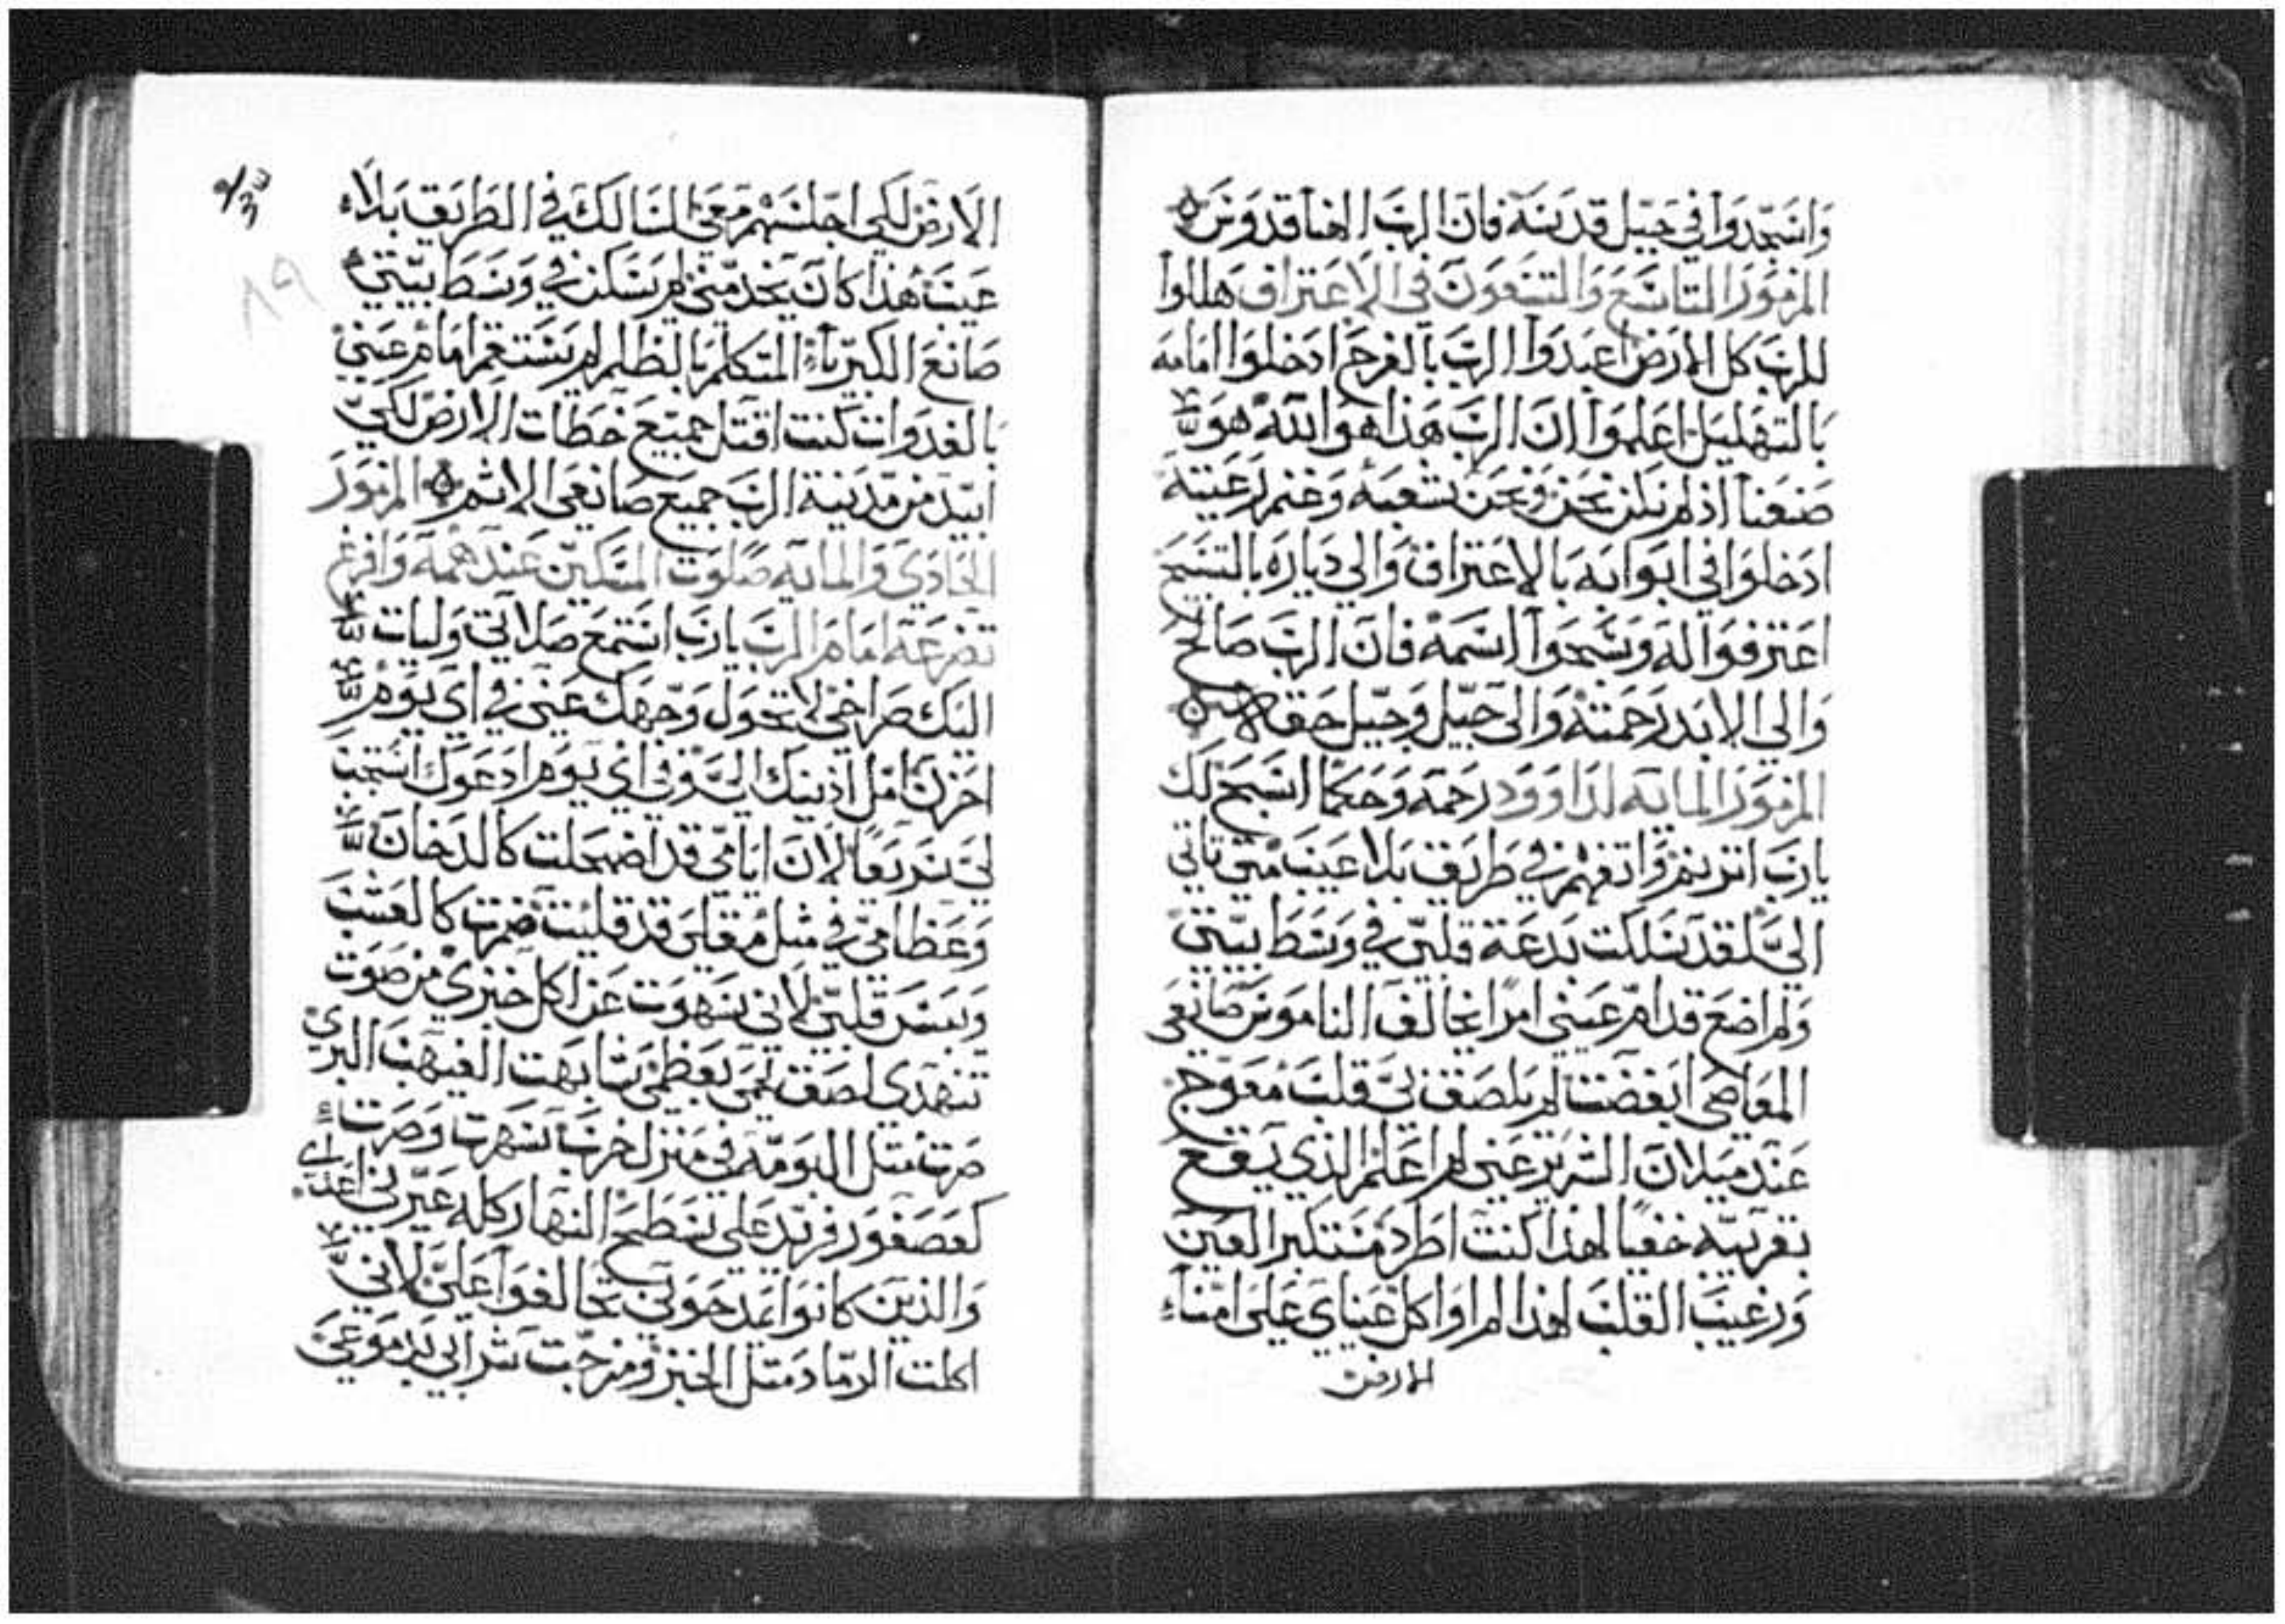 وَاسَجدَوا في جَبل قدسَه فان الرَبَ الهنا قدوسَ
المزمَورَ التاسَعَ وَالتسَعَونَ في الاعتراف هَللوا
للربَ كل الارَض اعبَدَوا الربَ بالفرح ادخلوا امَامه
بالتهَليل اعلموَا ان الربَ هَذا هوَ الله هوَ
صَنعَنا اذ لم نكن نحن ونحَن شعَبَه وغنم رَعَيته
ادخلوَا في ابوَابه بالاعتراف وَالي ديارَه بالتسَبيح
اعترفوَا له وَسَبحَوا اسَمه فان الربَ صَالح
وَالي الابد رَحمته وَالى جَيل وَجَيل حَقه
المزمَورَ المايه لدَاوَود رَحمه وَحَكمًا اسَبح لك
يا ربَ اترنم وَاتفهم في طريق بلا عيبَ متي تاتي
اليَّ لقد سَلكت بدعَة قلبي في وسَط بيتي
وَلم اضعَ قدام عَيني امرًا يخالف الناموسَ صَانعَي
المعَاصَي ابغضت لم يلصَق بيَ قلبَ معَوَّج
عَند مَيلان الشرير عَني لم اعَلم الذي يقع
بقريبه خفيا لهذا كنت اطرد مسَتكبر العَين
وَرغيبَ القلبَ لهذا لم اوَاكل عَيناي عَلى امنآء
الارض
٩/٣٤
٨٩
الارَض لكي اجلسَهم مَعَي السَالك في الطريق بلا
عَيبَ هذا كان يخدمني لم يسَكن في وسَط بيتي
صَانعَ الكبرياء المتكلم بالظلم لم يسَتقم امَام عَيني
بالغدوات كنت اقتل جميعَ خطات الارَض لكي
ابيد من مدينة الربَ جميعَ صَانعَي الاثم المزمَورَ
الحَادي وَالمايه صَلوَت المسَكين عَند همه وَافرغ
تضرعَه امَامَ الربَ يا ربَ اسَتمعَ صَلاتي وَليات
اليَك صَراخي لا تحَوَل وَجهَك عَني في اي يوَم
احَزن امل اذنيك اليَّ وفي اي يوَم ادعَوك اسَتجبَ
لي سَريعًا لان ايامي قد اضمحَلت كالدخان
وَعَظامي في مثل مقلي قد قليت ضمرت كالعَشبَ
وَيبسَ قلبي لاني سَهوت عَن اكل خبزي من صَوَت
تنهدي لصَق لحمَي بعَظمي شابهت الغيهبَ البري
صَرت مثل البومه في منزل خربَ سَهرت وَصَرت
كعَصَفورَ فريد عَلي سَطح النهار كله عَيّرَني اعَدآي
وَالذين كانوا يمدحَوني تحَالفوا عَليَّ لاني
اكلت الرمَاد مثل الخبز وَمزجَت شرابي بدموعَي